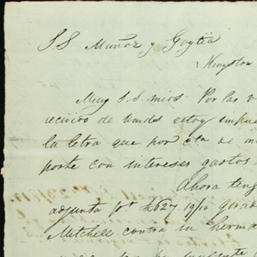 SS Muñoz y Goytia
Kingston
Muy S.S. mios. Por las v
recivos de Vmdes estoy impue
la letra que por cta de m
porte con intereses gastos
Ahora teng
adjunta pr £627 19/0 girad
Mitchell contra su herma